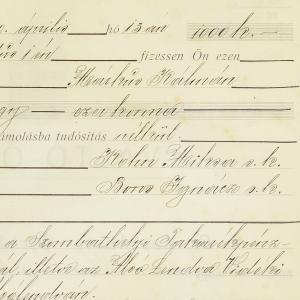 április hó 13 án 1000 k.-
án fizessen Ön ezen
Márkus Kálmán
egy — ezer korona
ámolásba tudósítás nélkül.
Kohn Miksa s. k.
Boros Ignácz s. k.
a Szombathelyi Takarékpénz-
tár, illetve az Alsó Lendva Vidéki